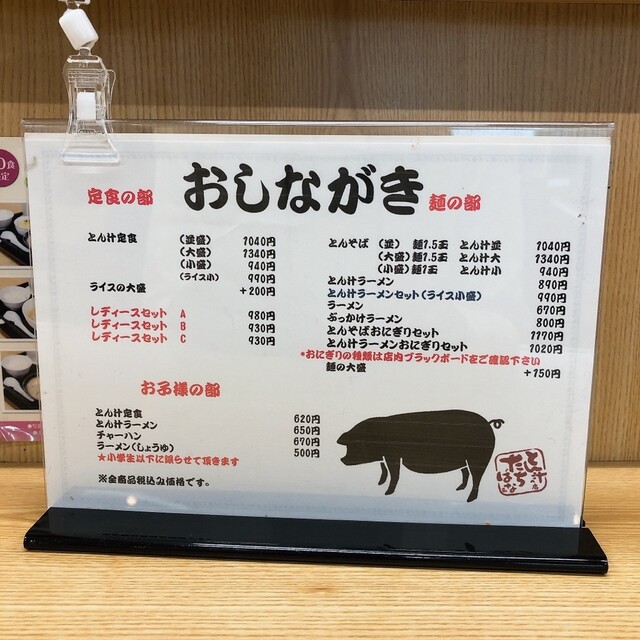 おしながき
定食の部
とん汁定食 (並盛) 1040円
(大盛) 1340円
(小盛) 940円
(ライス小) 990円
ライスの大盛 +200円
レディースセット A 980円
レディースセット B 930円
レディースセット C 930円
麺の部
とんそば (並) 麺1.5玉 とん汁並 1040円
(大盛) 麺1.5玉 とん汁大 1340円
(小盛) 麺1玉 とん汁小 940円
とん汁ラーメン 890円
とん汁ラーメンセット(ライス小盛) 990円
ラーメン 670円
ぶっかけラーメン 800円
とんそばおにぎりセット 1170円
とん汁ラーメンおにぎりセット 1020円
*おにぎりの種類は店内ブラックボードをご確認下さい
麺の大盛 +150円
お子様の部
とん汁定食 620円
とん汁ラーメン 650円
チャーハン 670円
ラーメン(しょうゆ) 500円
★小学生以下に限らせて頂きます
※全商品税込み価格です。
とん汁の店
たちばな